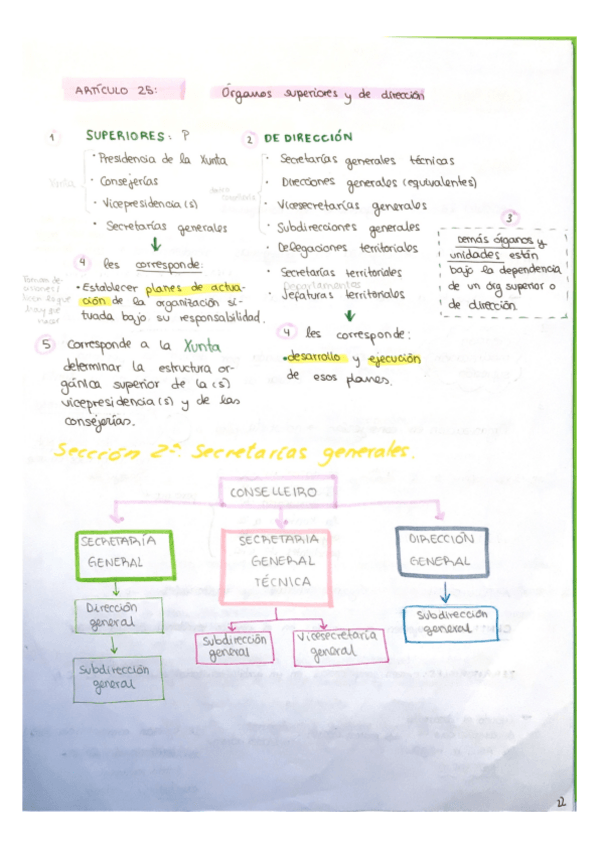 ARTÍCULO 25:
Órganos superiores y de dirección
1 SUPERIORES: P
· Presidencia de la Xunta
· Consejerías
· Vicepresidencia(s)
· Secretarías generales
Xunta
4 les corresponde:
· Establecer planes de actua-
ción de la organización si-
tuada bajo su responsabilidad.
5 Corresponde a la Xunta
determinar la estructura or-
gánica superior de la(s)
vicepresidencia(s) y de las
consejerías.
2 DE DIRECCIÓN
· Secretarías generales técnicas
· Direcciones generales (equivalentes)
· Vicesecretarías generales
· Subdirecciones generales
· Delegaciones territoriales
· Secretarías territoriales
Departamentos
· Jefaturas territoriales
4 les corresponde:
· desarrollo y ejecución
de esos planes.
3
Demás órganos y
unidades están
bajo la dependencia
de un órg superior o
de dirección.
Sección 2ª: Secretarías generales.
CONSELLEIRO
SECRETARÍA
GENERAL
Dirección
general
Subdirección
general
SECRETARIA
GENERAL
TÉCNICA
Subdirección
general
Vicesecretaría
general
DIRECCIÓN
GENERAL
Subdirección
general
22